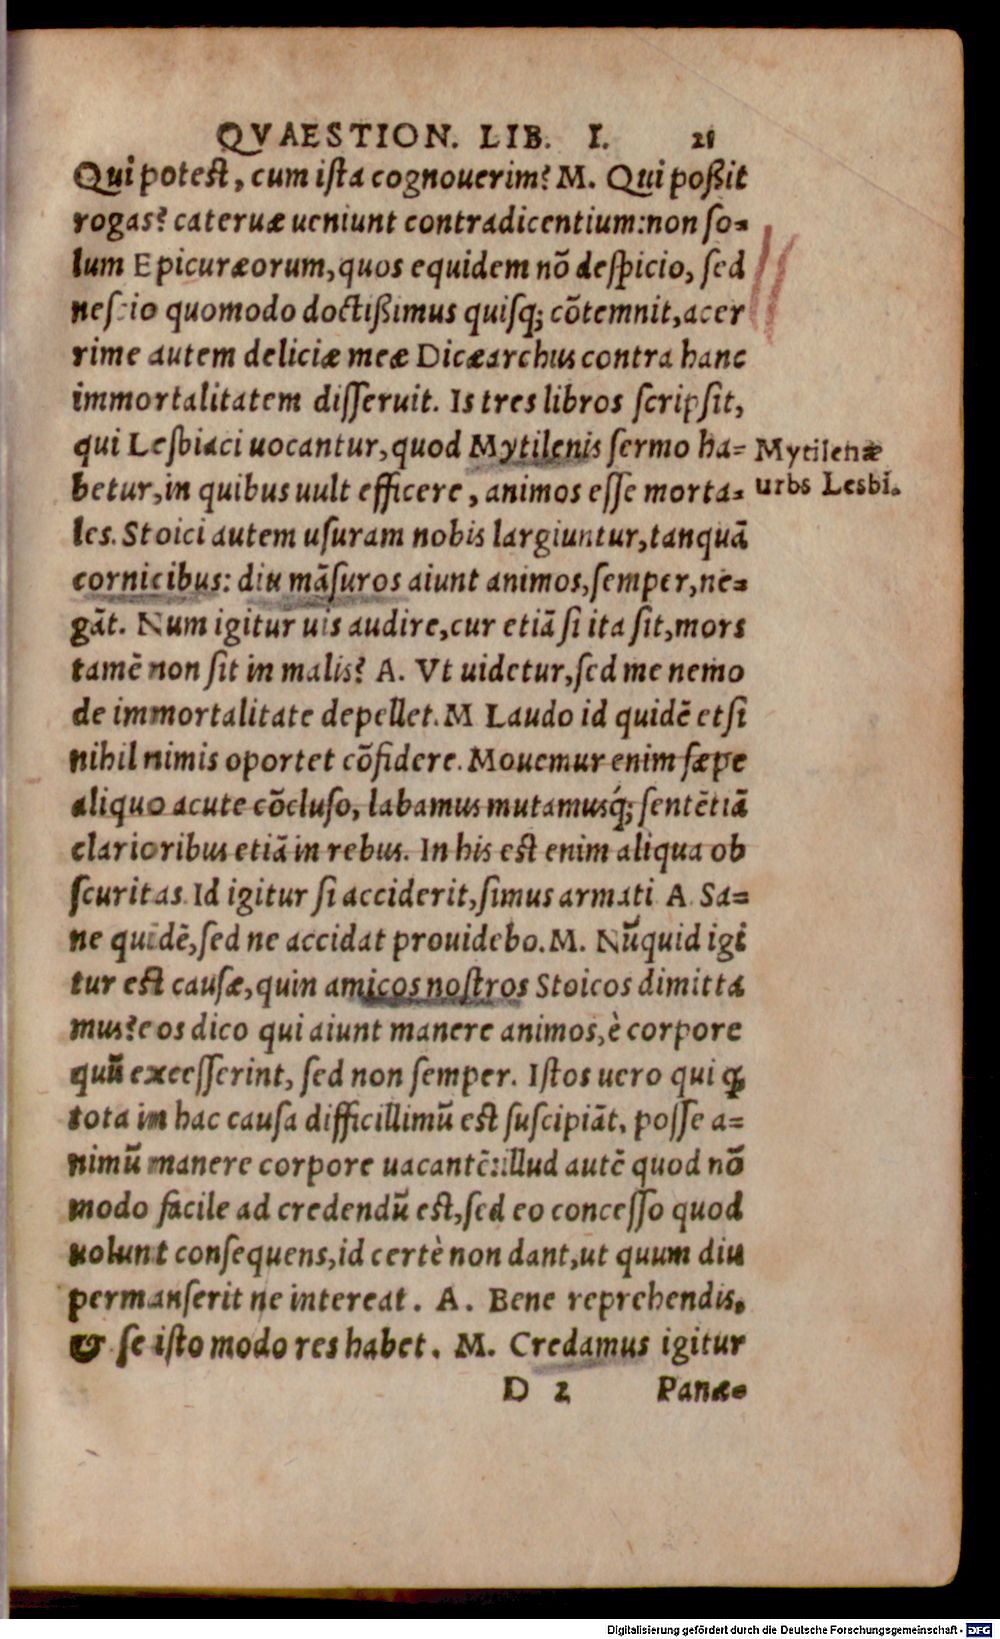 QVAESTION. LIB. I. 21
Qui potest, cum ista cognouerim? M. Qui poßit
rogas? cateruæ ueniunt contradicentium: non so-
lum Epicuræorum, quos equidem nõ despicio, sed
nescio quomodo doctißimus quisq; cõtemnit, acer
rime autem deliciæ meæ Dicæarchus contra hanc
immortalitatem disseruit. Is tres libros scripsit,
qui Lesbiaci uocantur, quod Mytilenis sermo ha-
Mytilenæ
betur, in quibus uult efficere, animos esse morta-
urbs Lesbi.
les. Stoici autem usuram nobis largiuntur, tanquã
cornicibus: diu mãsuros aiunt animos, semper, ne-
gãt. Num igitur uis audire, cur etiã si ita sit, mors
tamẽ non sit in malis? A. Vt uidetur, sed me nemo
de immortalitate depellet. M Laudo id quidẽ etsi
nihil nimis oportet cõfidere. Mouemur enim sæpe
aliquo acute cõcluso, labamus mutamusq́; sentẽtiã
clarioribus etiã in rebus. In his est enim aliqua ob
scuritas. Id igitur si acciderit, simus armati. A. Sa-
ne quidẽ, sed ne accidat prouidebo. M. Nũquid igi
tur est causæ, quin amicos nostros Stoicos dimitta
mus? eos dico qui aiunt manere animos, è corpore
quũ excesserint, sed non semper. Istos uero qui ꝙ
tota in hac causa difficillimũ est suscipiãt, posse a-
nimũ manere corpore uacantẽ: illud autẽ quod nõ
modo facile ad credendũ est, sed eo concesso quod
uolunt consequens, id certè non dant, ut quum diu
permanserit ne intereat. A. Bene reprehendis,
& se isto modo res habet. M. Credamus igitur
D 2 Panæ-
Digitalisierung gefördert durch die Deutsche Forschungsgemeinschaft - DFG